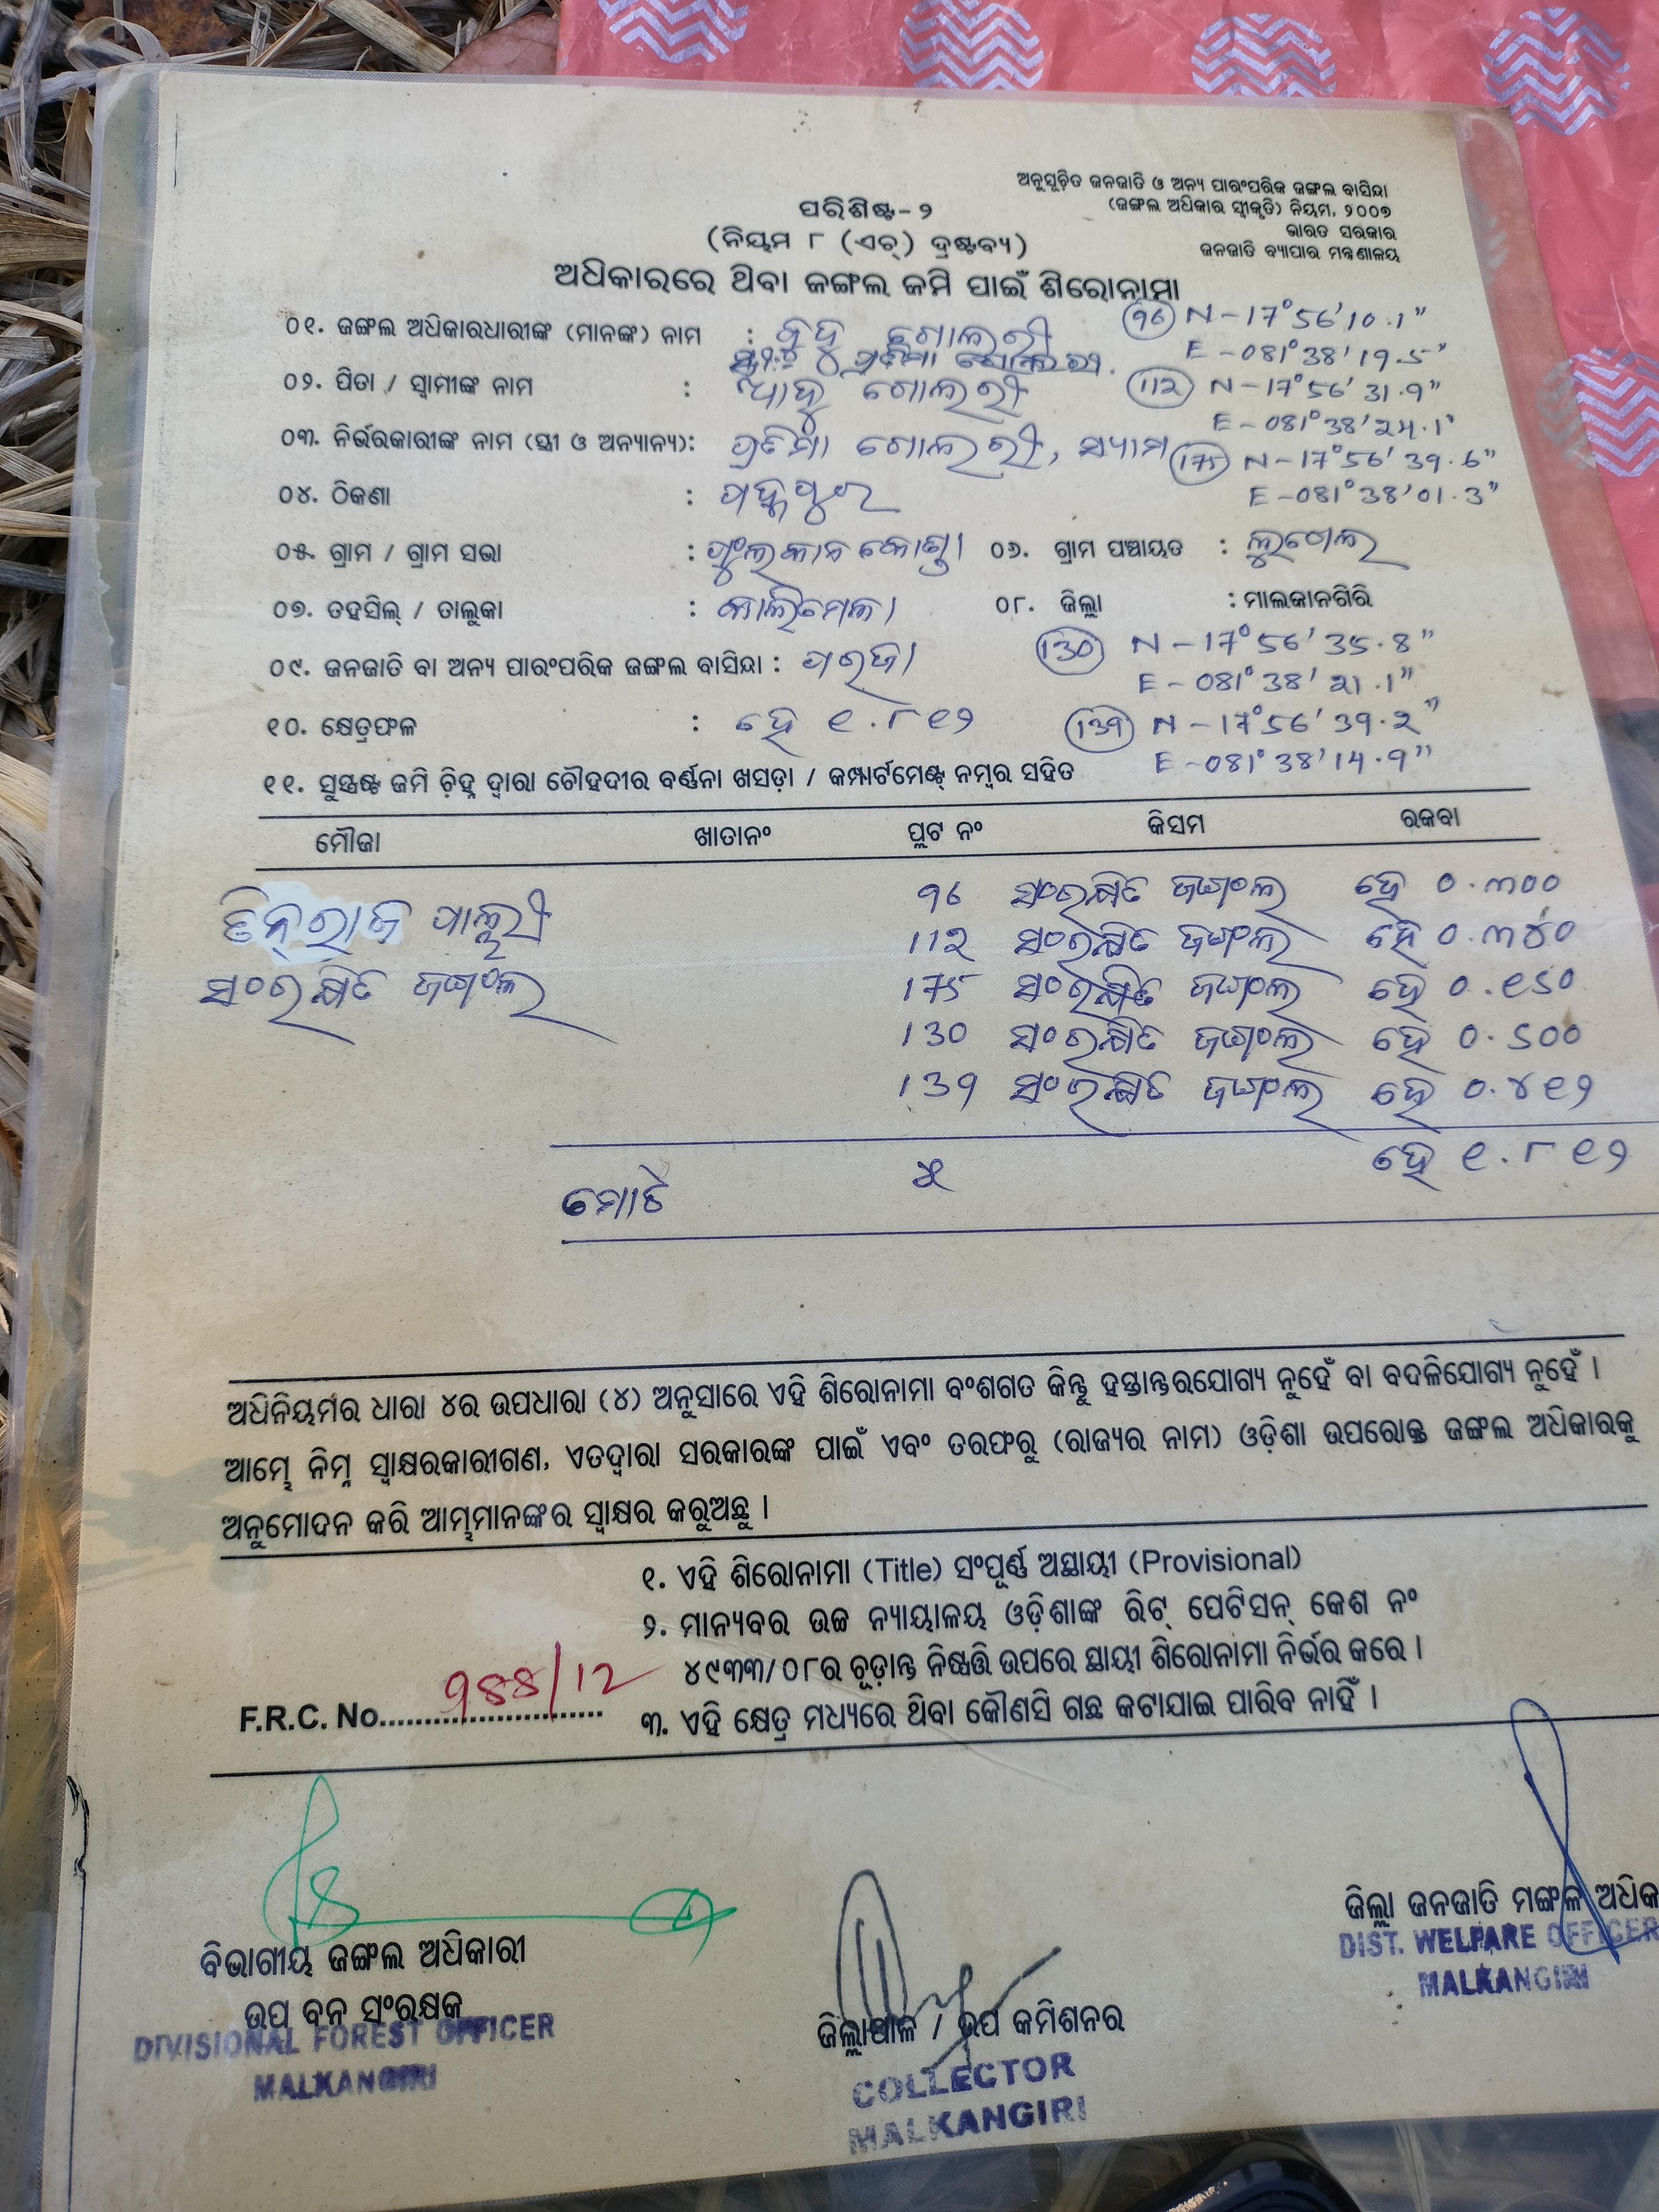 ଅନୁସୂଚିତ ଜନଜାତି ଓ ଅନ୍ୟ ପାରଂପରିକ ଜଙ୍ଗଲ ବାସିନ୍ଦା
(ଜଙ୍ଗଲ ଅଧିକାର ସ୍ୱୀକୃତି) ନିୟମ, ୨୦୦୭
ଭାରତ ସରକାର
ଜନଜାତି ବ୍ୟାପାର ମନ୍ତ୍ରଣାଳୟ
ପରିଶିଷ୍ଟ-୨
(ନିୟମ ୮ (ଏଚ୍) ଦ୍ରଷ୍ଟବ୍ୟ)
ଅଧିକାରରେ ଥିବା ଜଙ୍ଗଲ ଜମି ପାଇଁ ଶିରୋନାମା
୦୧. ଜଙ୍ଗଲ ଅଧିକାରଧାରୀଙ୍କ (ମାନଙ୍କ) ନାମ : ବୁଦୁ ଗୋଲରୀ
96 N-17°56'10.1"
E-081°38'19.5"
ପ୍ରତିମା ଗୋଲରୀ
୦୨. ପିତା / ସ୍ୱାମୀଙ୍କ ନାମ : ଗୋଲରୀ
112 N-17°56'31.9"
E-081°38'24.1"
୦୩. ନିର୍ଭରକାରୀଙ୍କ ନାମ (ସ୍ତ୍ରୀ ଓ ଅନ୍ୟାନ୍ୟ): ପ୍ରତିମା ଗୋଲରୀ, ସ୍ୟାମ
175 N-17°56'39.6"
E-081°38'01.3"
୦୪. ଠିକଣା : ପଦ୍ମପୁର
୦୫. ଗ୍ରାମ / ଗ୍ରାମ ସଭା : କୋଣ୍ଡା ୦୬. ଗ୍ରାମ ପଞ୍ଚାୟତ : ଲୁଗେଲ
୦୭. ତହସିଲ୍ / ତାଲୁକା : କାଲିମେଳା ୦୮. ଜିଲ୍ଲା : ମାଲକାନଗିରି
130 N-17°56'35.8"
E-081°38'21.1"
୦୯. ଜନଜାତି ବା ଅନ୍ୟ ପାରଂପରିକ ଜଙ୍ଗଲ ବାସିନ୍ଦା : ପରଜା
୧୦. କ୍ଷେତ୍ରଫଳ : ହେ ୧.୮୧୨
139 N-17°56'39.2"
E-081°38'14.9"
୧୧. ସୁସ୍ପଷ୍ଟ ଜମି ଚିହ୍ନ ଦ୍ୱାରା ଚୌହଦୀର ବର୍ଣ୍ଣନା ଖସଡ଼ା / କମ୍ପାର୍ଟମେଣ୍ଟ୍ ନମ୍ବର ସହିତ
ମୌଜା ଖାତାନଂ ପ୍ଲଟ ନଂ କିସମ ରକବା
ଚିନ୍ରାଜ ପାଲ୍ଲୀ 96 ସଂରକ୍ଷିତ ଜଙ୍ଗଲ ହେ ୦.୩୦୦
112 ସଂରକ୍ଷିତ ଜଙ୍ଗଲ ହେ ୦.୩୪୦
ସଂରକ୍ଷିତ ଜଙ୍ଗଲ 175 ସଂରକ୍ଷିତ ଜଙ୍ଗଲ ହେ ୦.୧୬୦
130 ସଂରକ୍ଷିତ ଜଙ୍ଗଲ ହେ ୦.୬୦୦
139 ସଂରକ୍ଷିତ ଜଙ୍ଗଲ ହେ ୦.୪୧୨
ମୋଟ ୫ ହେ ୧.୮୧୨
ଅଧିନିୟମର ଧାରା ୪ର ଉପଧାରା (୪) ଅନୁସାରେ ଏହି ଶିରୋନାମା ବଂଶଗତ କିନ୍ତୁ ହସ୍ତାନ୍ତରଯୋଗ୍ୟ ନୁହେଁ ବା ବଦଳିଯୋଗ୍ୟ ନୁହେଁ ।
ଆମ୍ଭେ ନିମ୍ନ ସ୍ୱାକ୍ଷରକାରୀଗଣ, ଏତଦ୍ୱାରା ସରକାରଙ୍କ ପାଇଁ ଏବଂ ତରଫରୁ (ରାଜ୍ୟର ନାମ) ଓଡ଼ିଶା ଉପରୋକ୍ତ ଜଙ୍ଗଲ ଅଧିକାରକୁ
ଅନୁମୋଦନ କରି ଆମ୍ଭମାନଙ୍କର ସ୍ୱାକ୍ଷର କରୁଅଛୁ ।
୧. ଏହି ଶିରୋନାମା (Title) ସଂପୂର୍ଣ୍ଣ ଅସ୍ଥାୟୀ (Provisional)
୨. ମାନ୍ୟବର ଉଚ୍ଚ ନ୍ୟାୟାଳୟ ଓଡ଼ିଶାଙ୍କ ରିଟ୍ ପେଟିସନ୍ କେଶ ନଂ
୪୯୩୩/୦୮ର ଚୂଡ଼ାନ୍ତ ନିଷ୍ପତ୍ତି ଉପରେ ସ୍ଥାୟୀ ଶିରୋନାମା ନିର୍ଭର କରେ ।
୩. ଏହି କ୍ଷେତ୍ର ମଧ୍ୟରେ ଥିବା କୌଣସି ଗଛ କଟାଯାଇ ପାରିବ ନାହିଁ ।
F.R.C. No......................... 988/12
ବିଭାଗୀୟ ଜଙ୍ଗଲ ଅଧିକାରୀ
ଉପ ବନ ସଂରକ୍ଷକ
DIVISIONAL FOREST OFFICER
MALKANGIRI
ଜିଲ୍ଲାପାଳ / ଉପ କମିଶନର
COLLECTOR
MALKANGIRI
ଜିଲ୍ଲା ଜନଜାତି ମଙ୍ଗଳ ଅଧିକ
DIST. WELFARE OFFICER
MALKANGIRI